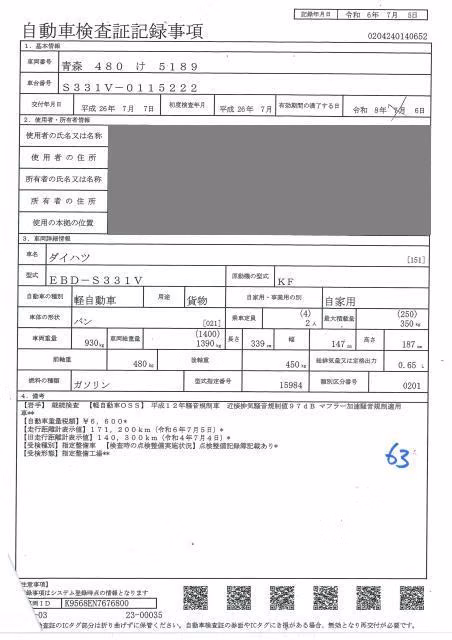 記録年月日 令和 6年 7月 5日
自動車検査証記録事項
0204240140652
1．基本情報
車両番号 青森 480 け 5189
車台番号 S331V-0115222
交付年月日 平成 26年 7月 7日 初度検査年月 平成 26年 7月 有効期間の満了する日 令和 8年 7月 6日
2．使用者・所有者情報
使用者の氏名又は名称
使用者の住所
所有者の氏名又は名称
所有者の住所
使用の本拠の位置
3．車両詳細情報
車名 ダイハツ [151]
型式 EBD-S331V 原動機の型式 KF
自動車の種別 軽自動車 用途 貨物 自家用・事業用の別 自家用
車体の形状 バン [021] 乗車定員 (4) 2人 最大積載量 (250) 350kg
車両重量 930kg 車両総重量 (1400) 1390kg 長さ 339cm 幅 147cm 高さ 187cm
前軸重 480kg 後軸重 450kg 総排気量又は定格出力 0.65 L
燃料の種類 ガソリン 型式指定番号 15984 類別区分番号 0201
4．備考
【岩手】 継続検査 【軽自動車OSS】 平成12年騒音規制車 近接排気騒音規制値97dB マフラー加速騒音規制適用
車**
【自動車重量税額】¥6,600*
【走行距離計表示値】171,200km（令和6年7月5日）*
【旧走行距離計表示値】140,300km（令和4年7月4日）*
【受検種別】指定整備車 【検査時の点検整備実施状況】点検整備記録簿記載あり*
【受検形態】指定整備工場**
63
注意事項】
記録事項はシステム登録時点の情報となります
車両ID K9568EN7676800
-03 23-00035
検査証のICタグ部分は折り曲げずに保管ください。自動車検査証の券面やICタグにき損がある場合、無効となり再交付が必要です。